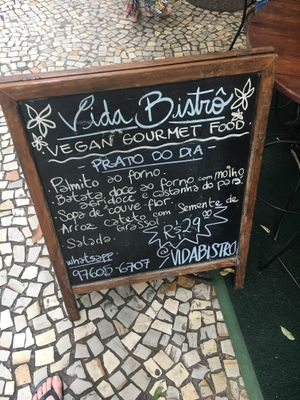 Vida Bistrô
VEGAN GOURMET FOOD
PRATO DO DIA
Palmito ao forno.
Batata doce ao forno com molho
agridoce e castanha do pará
Sopa de couve-flor.
Arroz cateto com semente de
Girassol
Salada.
R$29,00
whatsapp
97605-6707
@VIDABISTRO